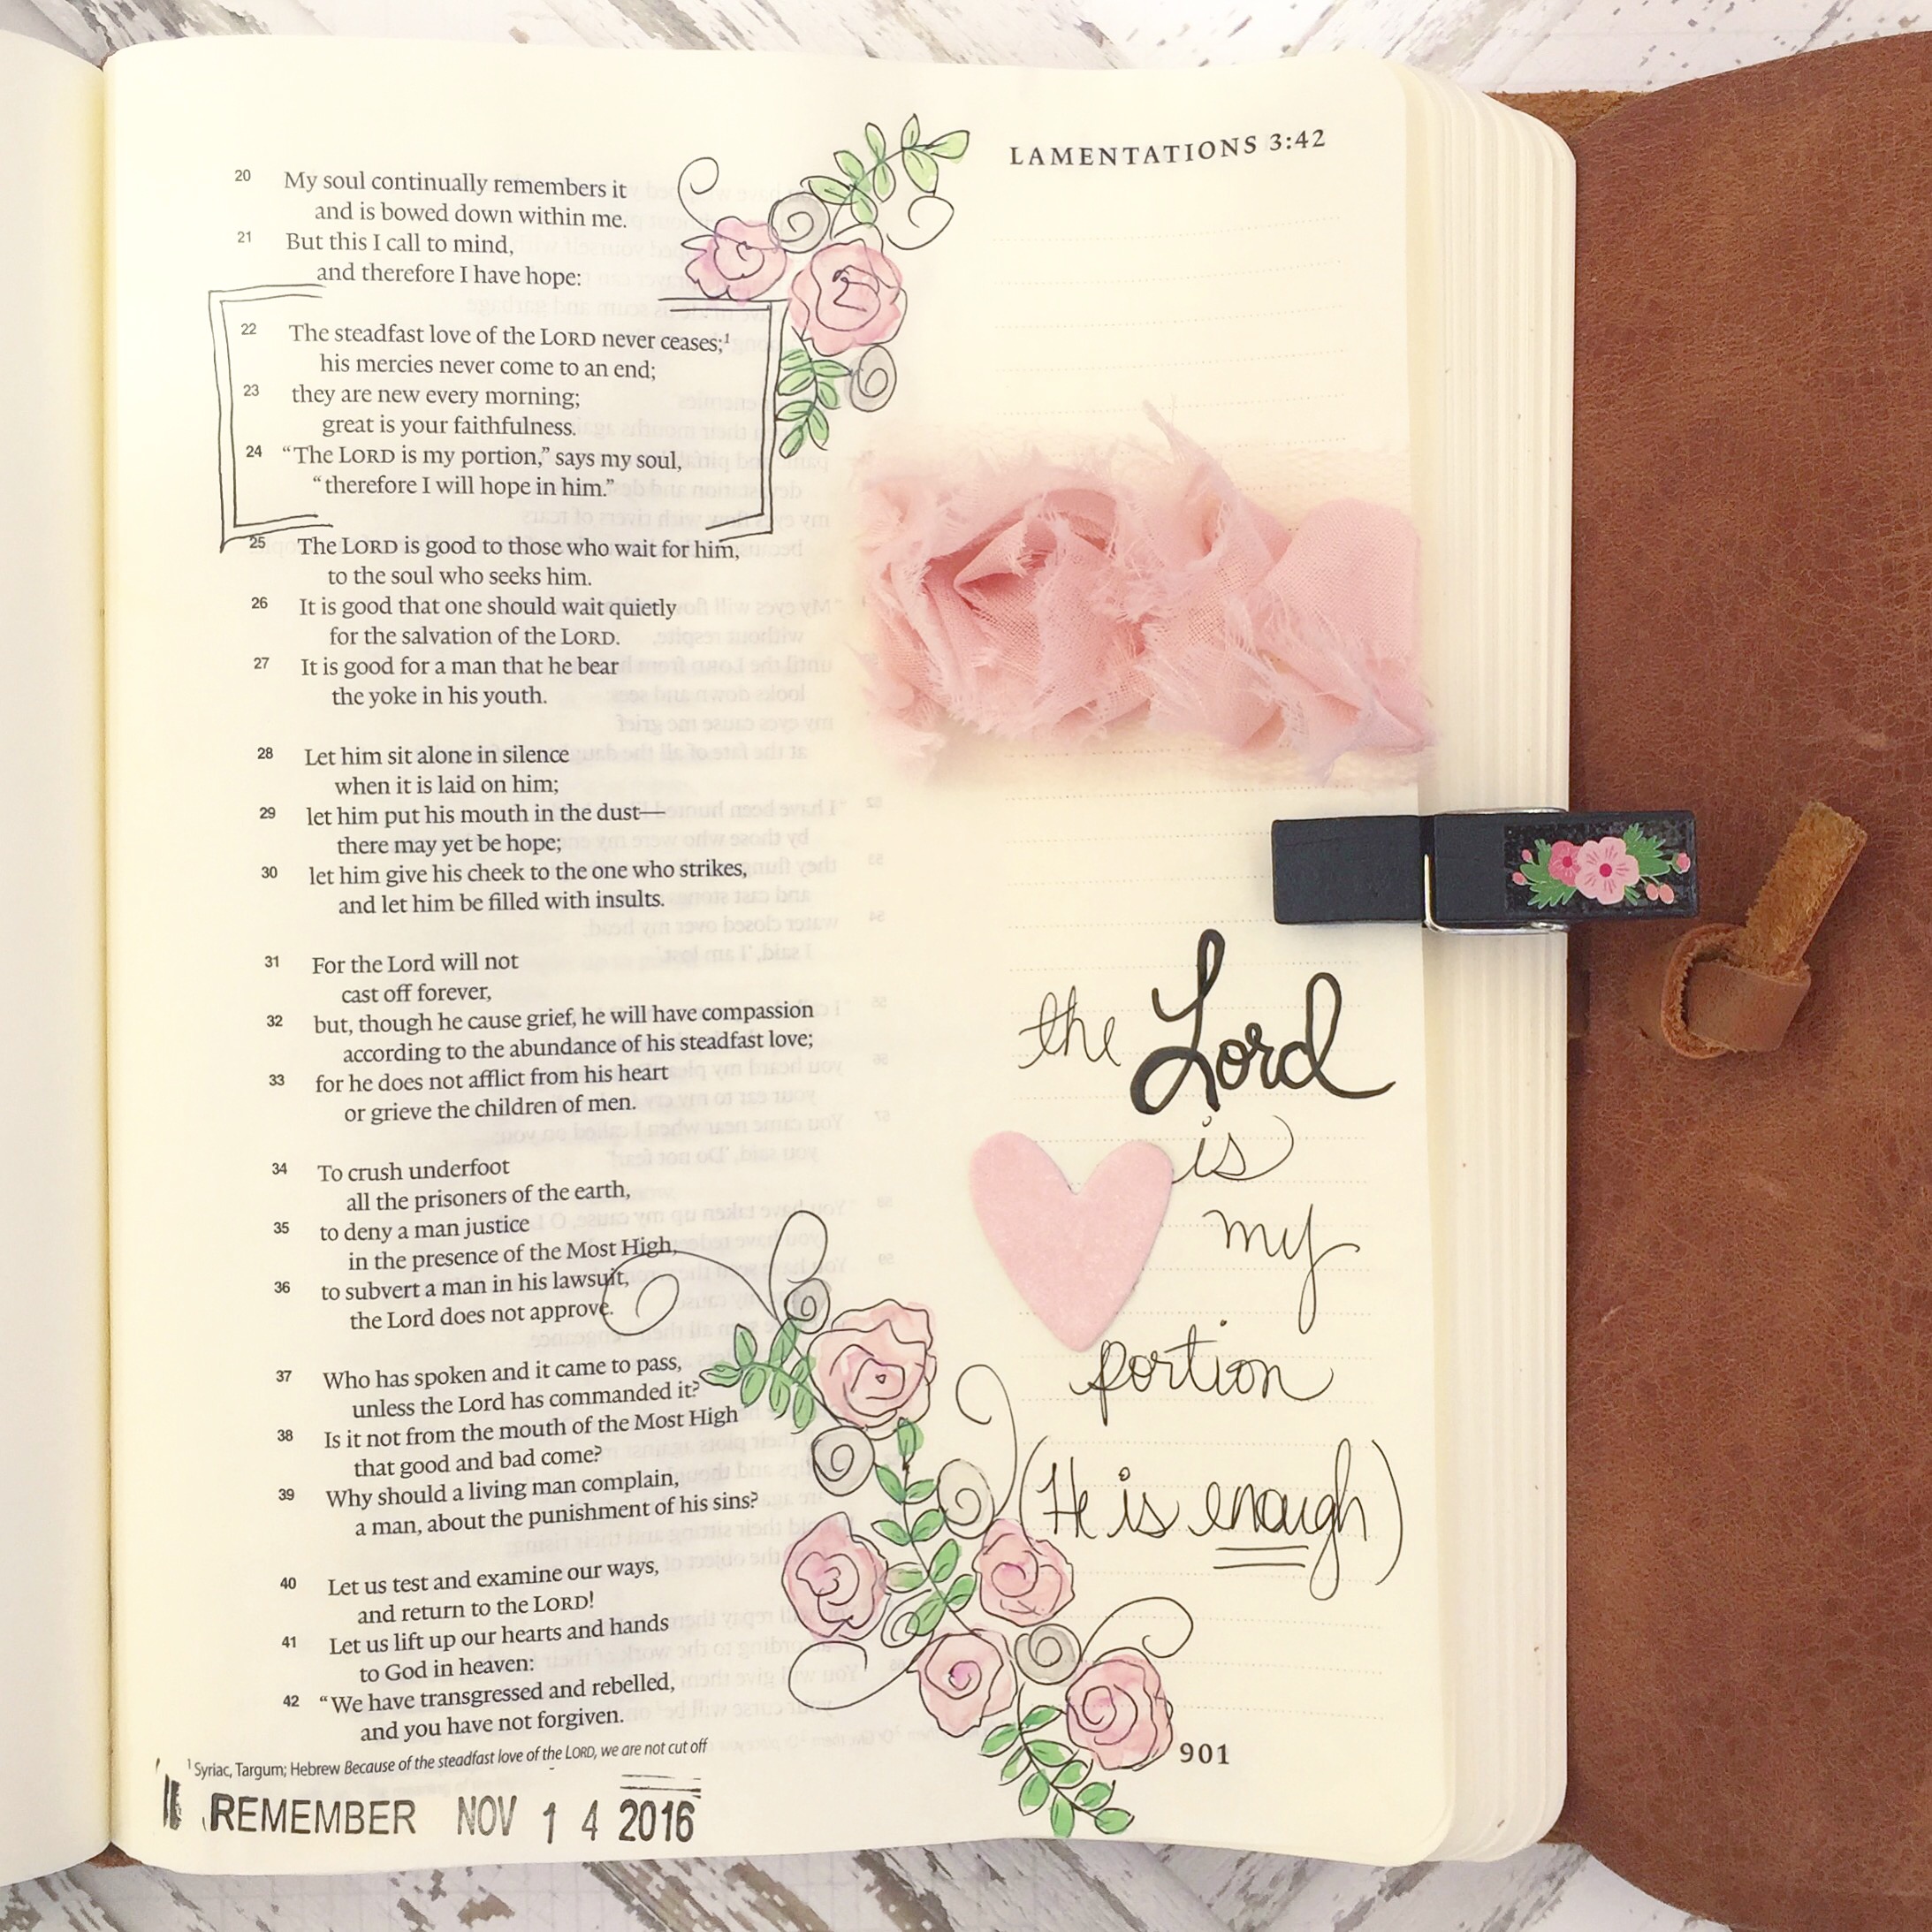 LAMENTATIONS 3:42
20 My soul continually remembers it
and is bowed down within me.
21 But this I call to mind,
and therefore I have hope:
22 The steadfast love of the LORD never ceases;1
his mercies never come to an end;
23 they are new every morning;
great is your faithfulness.
24 “The LORD is my portion,” says my soul,
“therefore I will hope in him.”
25 The LORD is good to those who wait for him,
to the soul who seeks him.
26 It is good that one should wait quietly
for the salvation of the LORD.
27 It is good for a man that he bear
the yoke in his youth.
28 Let him sit alone in silence
when it is laid on him;
29 let him put his mouth in the dust—
there may yet be hope;
30 let him give his cheek to the one who strikes,
and let him be filled with insults.
31 For the Lord will not
cast off forever,
32 but, though he cause grief, he will have compassion
according to the abundance of his steadfast love;
33 for he does not afflict from his heart
or grieve the children of men.
34 To crush underfoot
all the prisoners of the earth,
35 to deny a man justice
in the presence of the Most High,
36 to subvert a man in his lawsuit,
the Lord does not approve.
37 Who has spoken and it came to pass,
unless the Lord has commanded it?
38 Is it not from the mouth of the Most High
that good and bad come?
39 Why should a living man complain,
a man, about the punishment of his sins?
40 Let us test and examine our ways,
and return to the LORD!
41 Let us lift up our hearts and hands
to God in heaven:
42 “We have transgressed and rebelled,
and you have not forgiven.
1 Syriac, Targum; Hebrew Because of the steadfast love of the LORD, we are not cut off
REMEMBER NOV 14 2016
the Lord
is
my
portion
(He is enough)
901